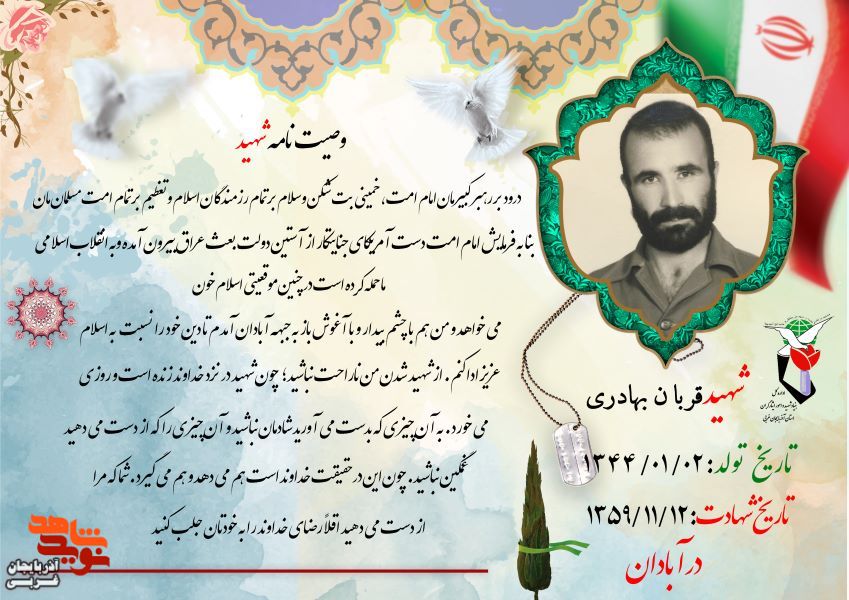 وصیت نامه شهید
درود بر رهبر کبیرمان امام امت، خمینی بت شکن و سلام بر تمام رزمندگان اسلام و تعظیم بر تمام امت مسلمان مان
بنا به فرمایش امام امت دست آمریکای جنایتکار از آستین دولت بعث عراق بیرون آمده و به انقلاب اسلامی
ما حمله کرده است در چنین موقعیتی اسلام خون
می خواهد و من هم با چشم بیدار و با آغوش باز به جبهه آبادان آمدم تا دین خود را نسبت به اسلام
عزیز ادا کنم. از شهید شدن من ناراحت نباشید؛ چون شهید در نزد خداوند زنده است و روزی
می خورد. به آن چیزی که بدست می آورید شادمان نباشید و آن چیزی را که از دست می دهید
غمگین نباشید. چون این در حقیقت خداوند است هم می دهد و هم می گیرد. شما که مرا
از دست می دهید اقلاً رضای خداوند را به خودتان جلب کنید
شهید قربان بهادری
تاریخ تولد: ۱۳۴۴/۰۱/۰۲
تاریخ شهادت: ۱۳۵۹/۱۱/۱۲
در آبادان
اداره کل
بنیاد شهید و امور ایثارگران
استان آذربایجان غربی
نوید شاهد
آذربایجان
غربی